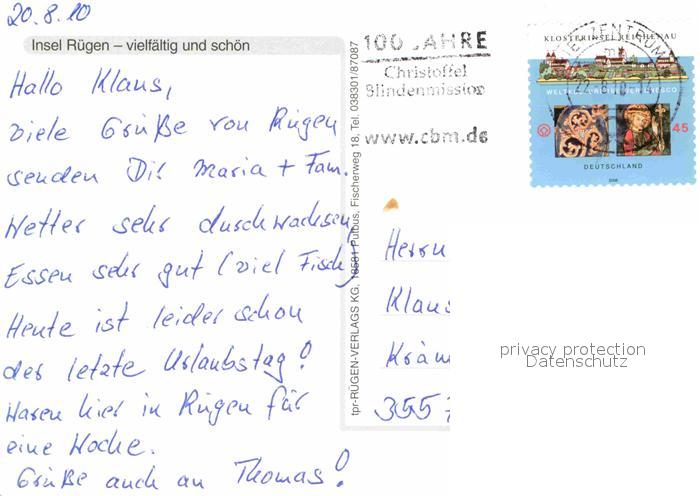 20.8.10
Insel Rügen – vielfältig und schön
Hallo Klaus,
viele Grüße von Rügen
senden Dir Maria + Fam.
Wetter sehr durchwachsen,
Essen sehr gut (viel Fisch)
Heute ist leider schon
der letzte Urlaubstag!
Waren hier in Rügen für
eine Woche.
Grüße auch an Thomas!
tpr-RÜGEN-VERLAGS KG, 18581 Putbus, Fischerweg 18, Tel. 038301/87087
100 JAHRE
Christoffel
Blindenmission
www.cbm.de
KLOSTERINSEL REICHENAU
WELTKULTURERBE DER UNESCO
45
DEUTSCHLAND
2008
Herrn
Klaus
Kräm
3557
privacy protection
Datenschutz